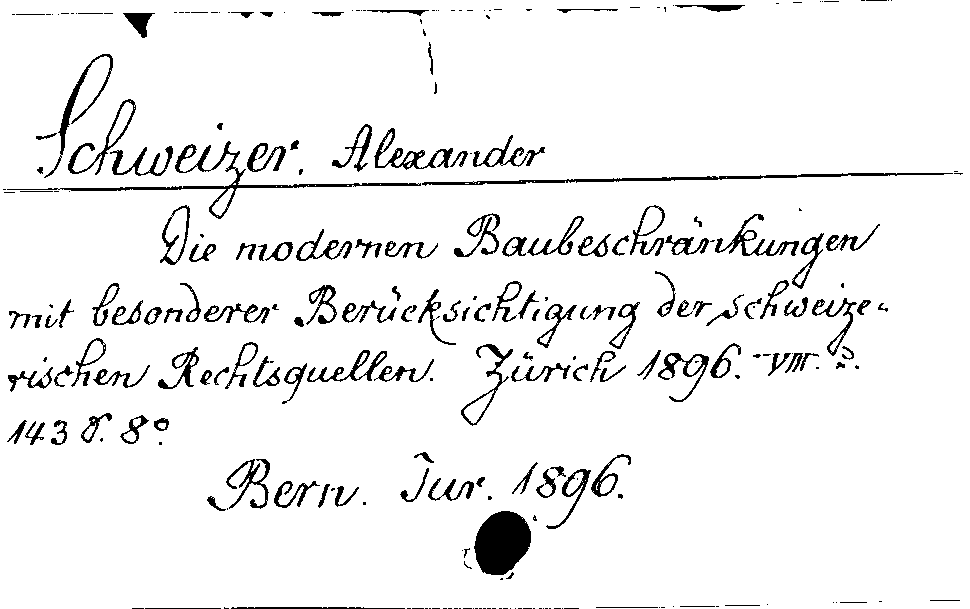 Schweizer, Alexander
Die modernen Baubeschränkungen
mit besonderer Berücksichtigung der schweize-
rischen Rechtsquellen. Zürich 1896. VIII. u.
143 S. 8°
Bern. Jur. 1896.